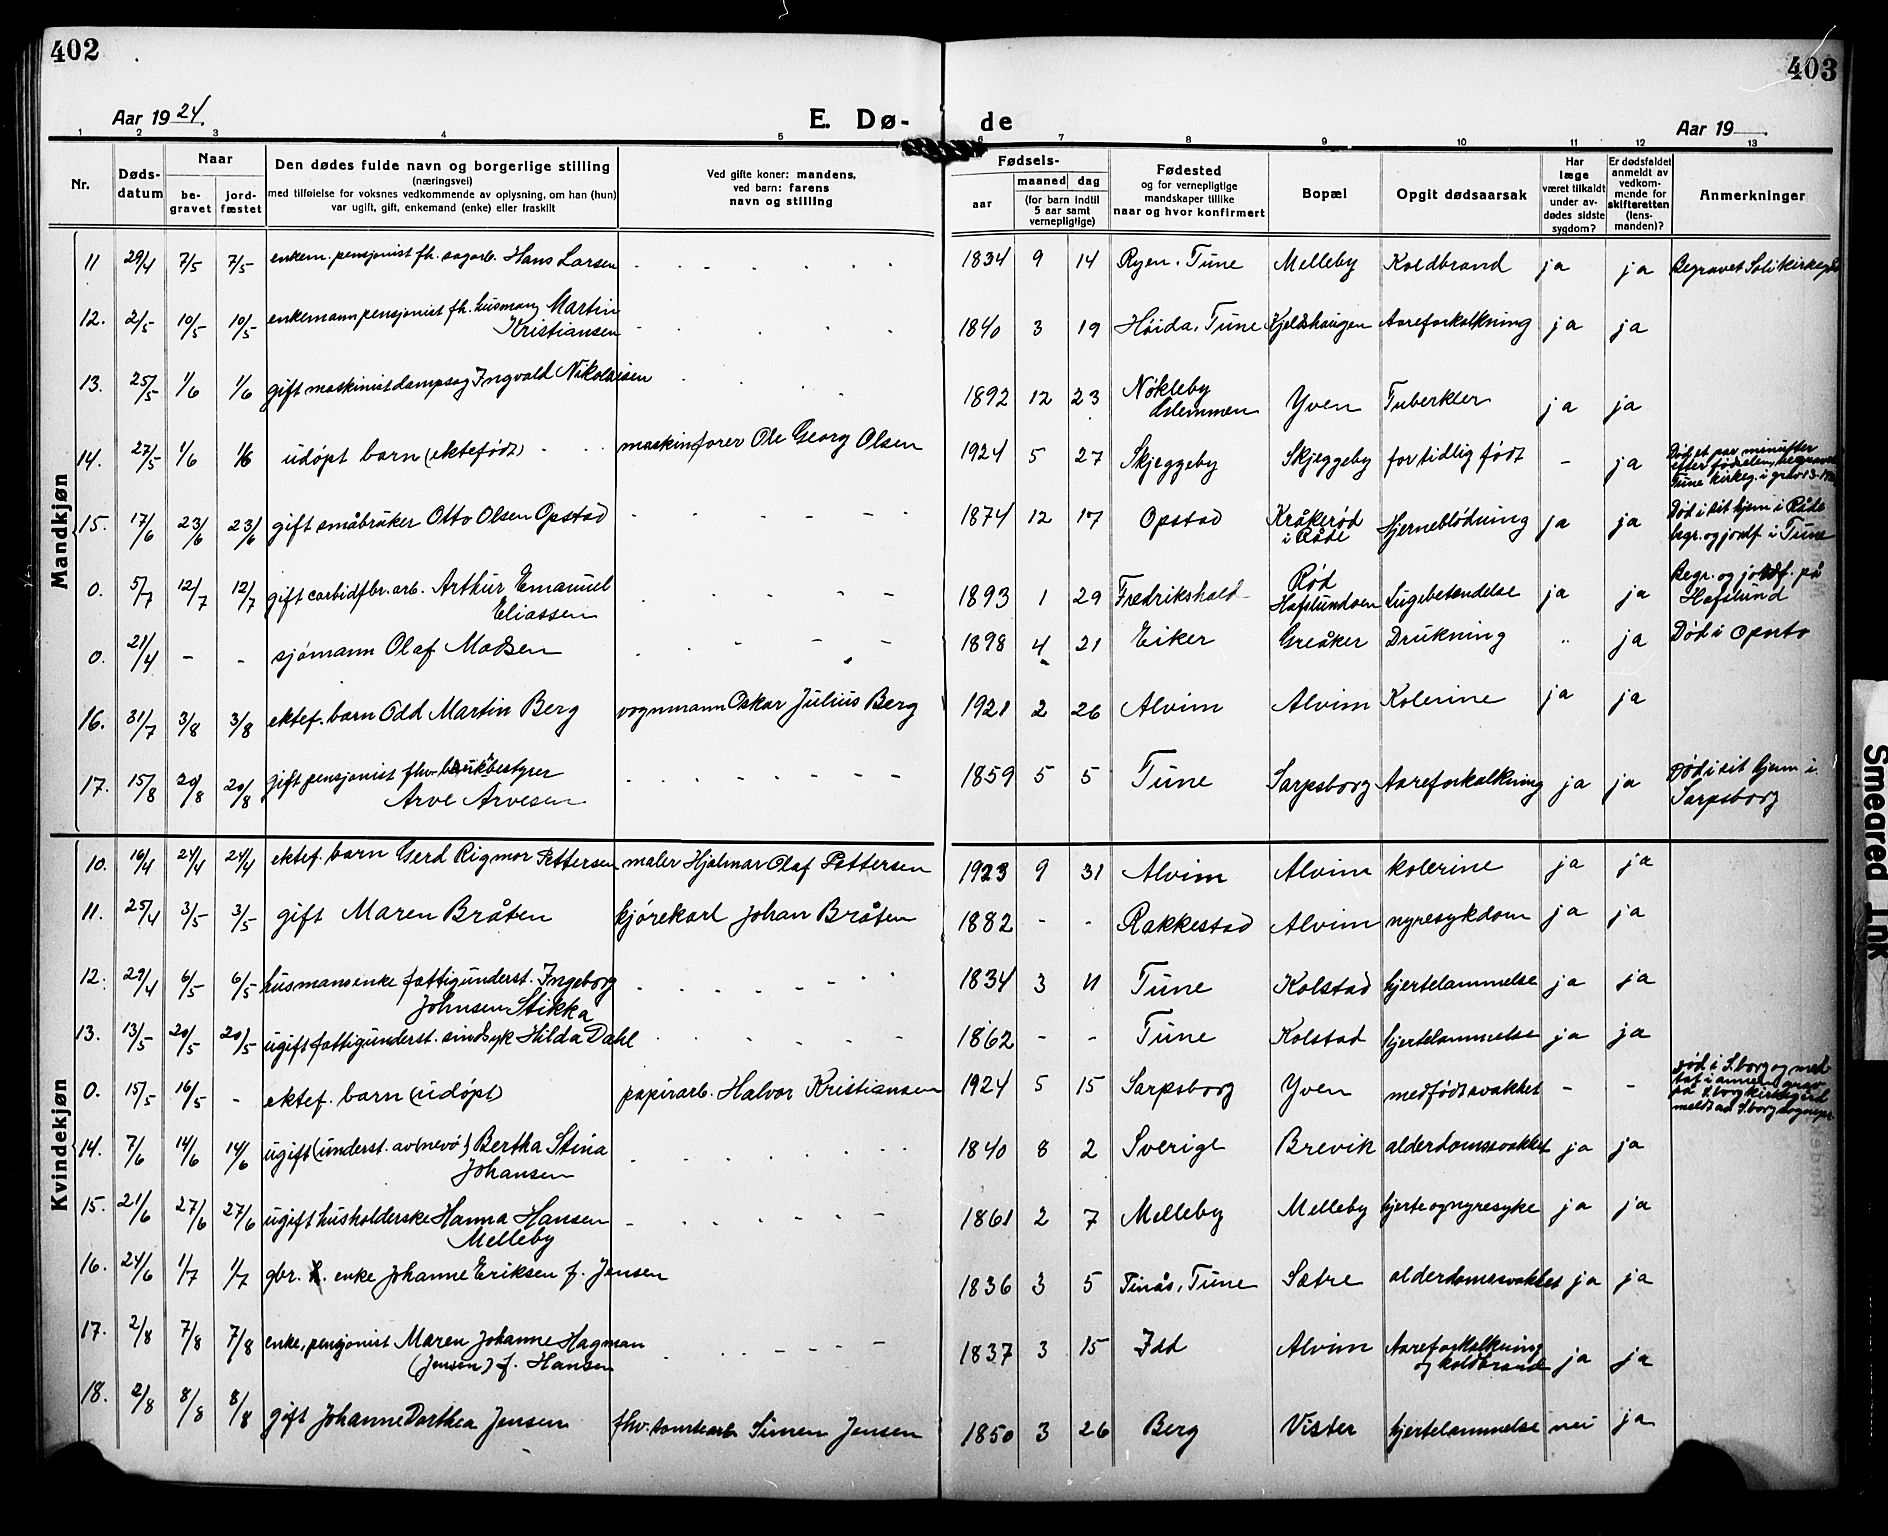 402
403
Aar 1924.
E. Dø-
de
Aar 19
1 2 3 4 5 6 7 8 9 10 11 12 13
Nr.
Døds-
datum
Naar
be-
gravet
jord-
fæstet
Den dødes fulde navn og borgerlige stilling
(næringsvei)
med tilføielse for voksnes vedkommende av oplysning, om han (hun)
var ugift, gift, enkemand (enke) eller fraskilt
Ved gifte koner: mandens,
ved barn: farens
navn og stilling
Fødsels-
aar
maaned
dag
(for barn indtil
5 aar samt
vernepligtige)
Fødested
og for vernepligtige
mandskaper tillike
naar og hvor konfirmert
Bopæl
Opgit dødsaarsak
Har
læge
været tilkaldt
under av-
dødes sidste
sygdom?
Er dødsfaldet
anmeldt av
vedkom-
mende for
skifteretten
(lens-
manden)?
Anmerkninger
Mandkjøn
11 29/4 7/5 7/5 enkem. pensjonist fh. sagarb. Hans Larsen - - - - - 1834 9 14 Ryen, Tune Melleby Koldbrand ja ja Begravet Soli kirkeg.
12. 2/5 10/5 10/5 enkemann pensjonist fh. husmann Martin
Kristiansen - - - 1840 3 19 Høida, Tune Kjeldshaugen Aareforkalkning ja ja
13. 25/5 1/6 1/6 gift maskinist dampsag Ingvald Nikolaisen - - - 1892 12 23 Nøkleby
Glemmen Yven Tuberkler ja ja
14. 27/5 1/6 1/6 udøpt barn (ektefødt) - - maskinfører Ole Georg Olsen 1924 5 27 Skjeggeby Skjeggeby for tidlig født - ja Død et par minutter
efter fødselen, begravet
Tune kirkeg. i grav
15. 17/6 23/6 23/6 gift småbruker Otto Olsen Opstad - - - - - 1874 12 17 Opstad Kråkerød
i Råde Hjerneblødning ja ja Død i sit hjem i Råde
begr. og jordf. i Tune
0. 5/7 12/7 12/7 gift carbidfbr. arb. Arthur Emanuel
Eliassen - - - - - 1893 1 29 Fredrikshald Rød
Hafslundsøen Lugebetændelse ja ja Begr. og jordf. på
Hafslund
0. 21/4 - - sjømann Olaf Madsen - - - - - 1898 4 21 Eiker Greåker Drukning " ja Død i Oporto
16. 31/7 3/8 3/8 ektef. barn Odd Martin Berg vognmann Oskar Julius Berg 1921 2 26 Alvim Alvim Kolerine ja ja
17. 15/8 20/8 20/8 gift pensjonist fhv. brukbestyrer
Arve Arvesen - - - - - - - 1859 5 5 Tune Sarpsborg Aareforkalkning ja ja Død i sit hjem i
Sarpsborg
Kvindekjøn
10. 16/4 24/4 24/4 ektef. barn Gerd Rigmor Pettersen maler Hjalmar Olaf Pettersen 1923 9 31 Alvim Alvim kolerine ja ja
11. 25/4 3/5 3/5 gift Maren Bråten kjørekarl Johan Bråten 1882 - - Rakkestad Alvim nyresykdom ja ja
12. 29/4 6/5 6/5 husmansenke fattigunderst. Ingeborg
Johnsen Stikka - - - - - - 1834 3 11 Tune Kolstad hjertelammelse ja ja
13. 13/5 20/5 20/5 ugift fattigunderst. sindsyk Hilda Dahl - - - - - - 1862 - - Tune Kolstad hjertelammelse ja ja
0. 15/5 16/5 - ektef. barn (udøpt) papirarb. Halvor Kristiansen 1924 5 15 Sarpsborg Yven medfødt svakhet - - Død i S.borg og ned
sat i annen grav
på S.borg kirkeg.
meldt av S.borg sognepr.
14. 7/6 14/6 14/6 ugift (underst. av nevø) Bertha Stina
Johansen - - - - - - 1840 8 2 Sverige Brevik alderdomssvakhet ja ja
15. 21/6 27/6 27/6 ugift husholderske Hanna Hansen
Melleby - - - - - - 1861 2 7 Melleby Melleby hjerte og nyresyke ja ja
16. 24/6 1/7 1/7 gbr. enke Johanne Eriksen f. Jensen 1836 3 5 Tinås, Tune Sætre alderdomssvakhet ja ja
17. 2/8 7/8 7/8 enke, pensjonist Maren Johanne Hagman
(Jensen) f. Hansen - - - - - - 1837 3 15 Idd Alvim Aareforkalkning
og koldbrand ja ja
18. 2/8 8/8 8/8 gift Johanne Dorthea Jensen fhv. tomtearb. Simen Jensen 1850 3 26 Berg Vister hjertelammelse nei ja
Smeared Ink